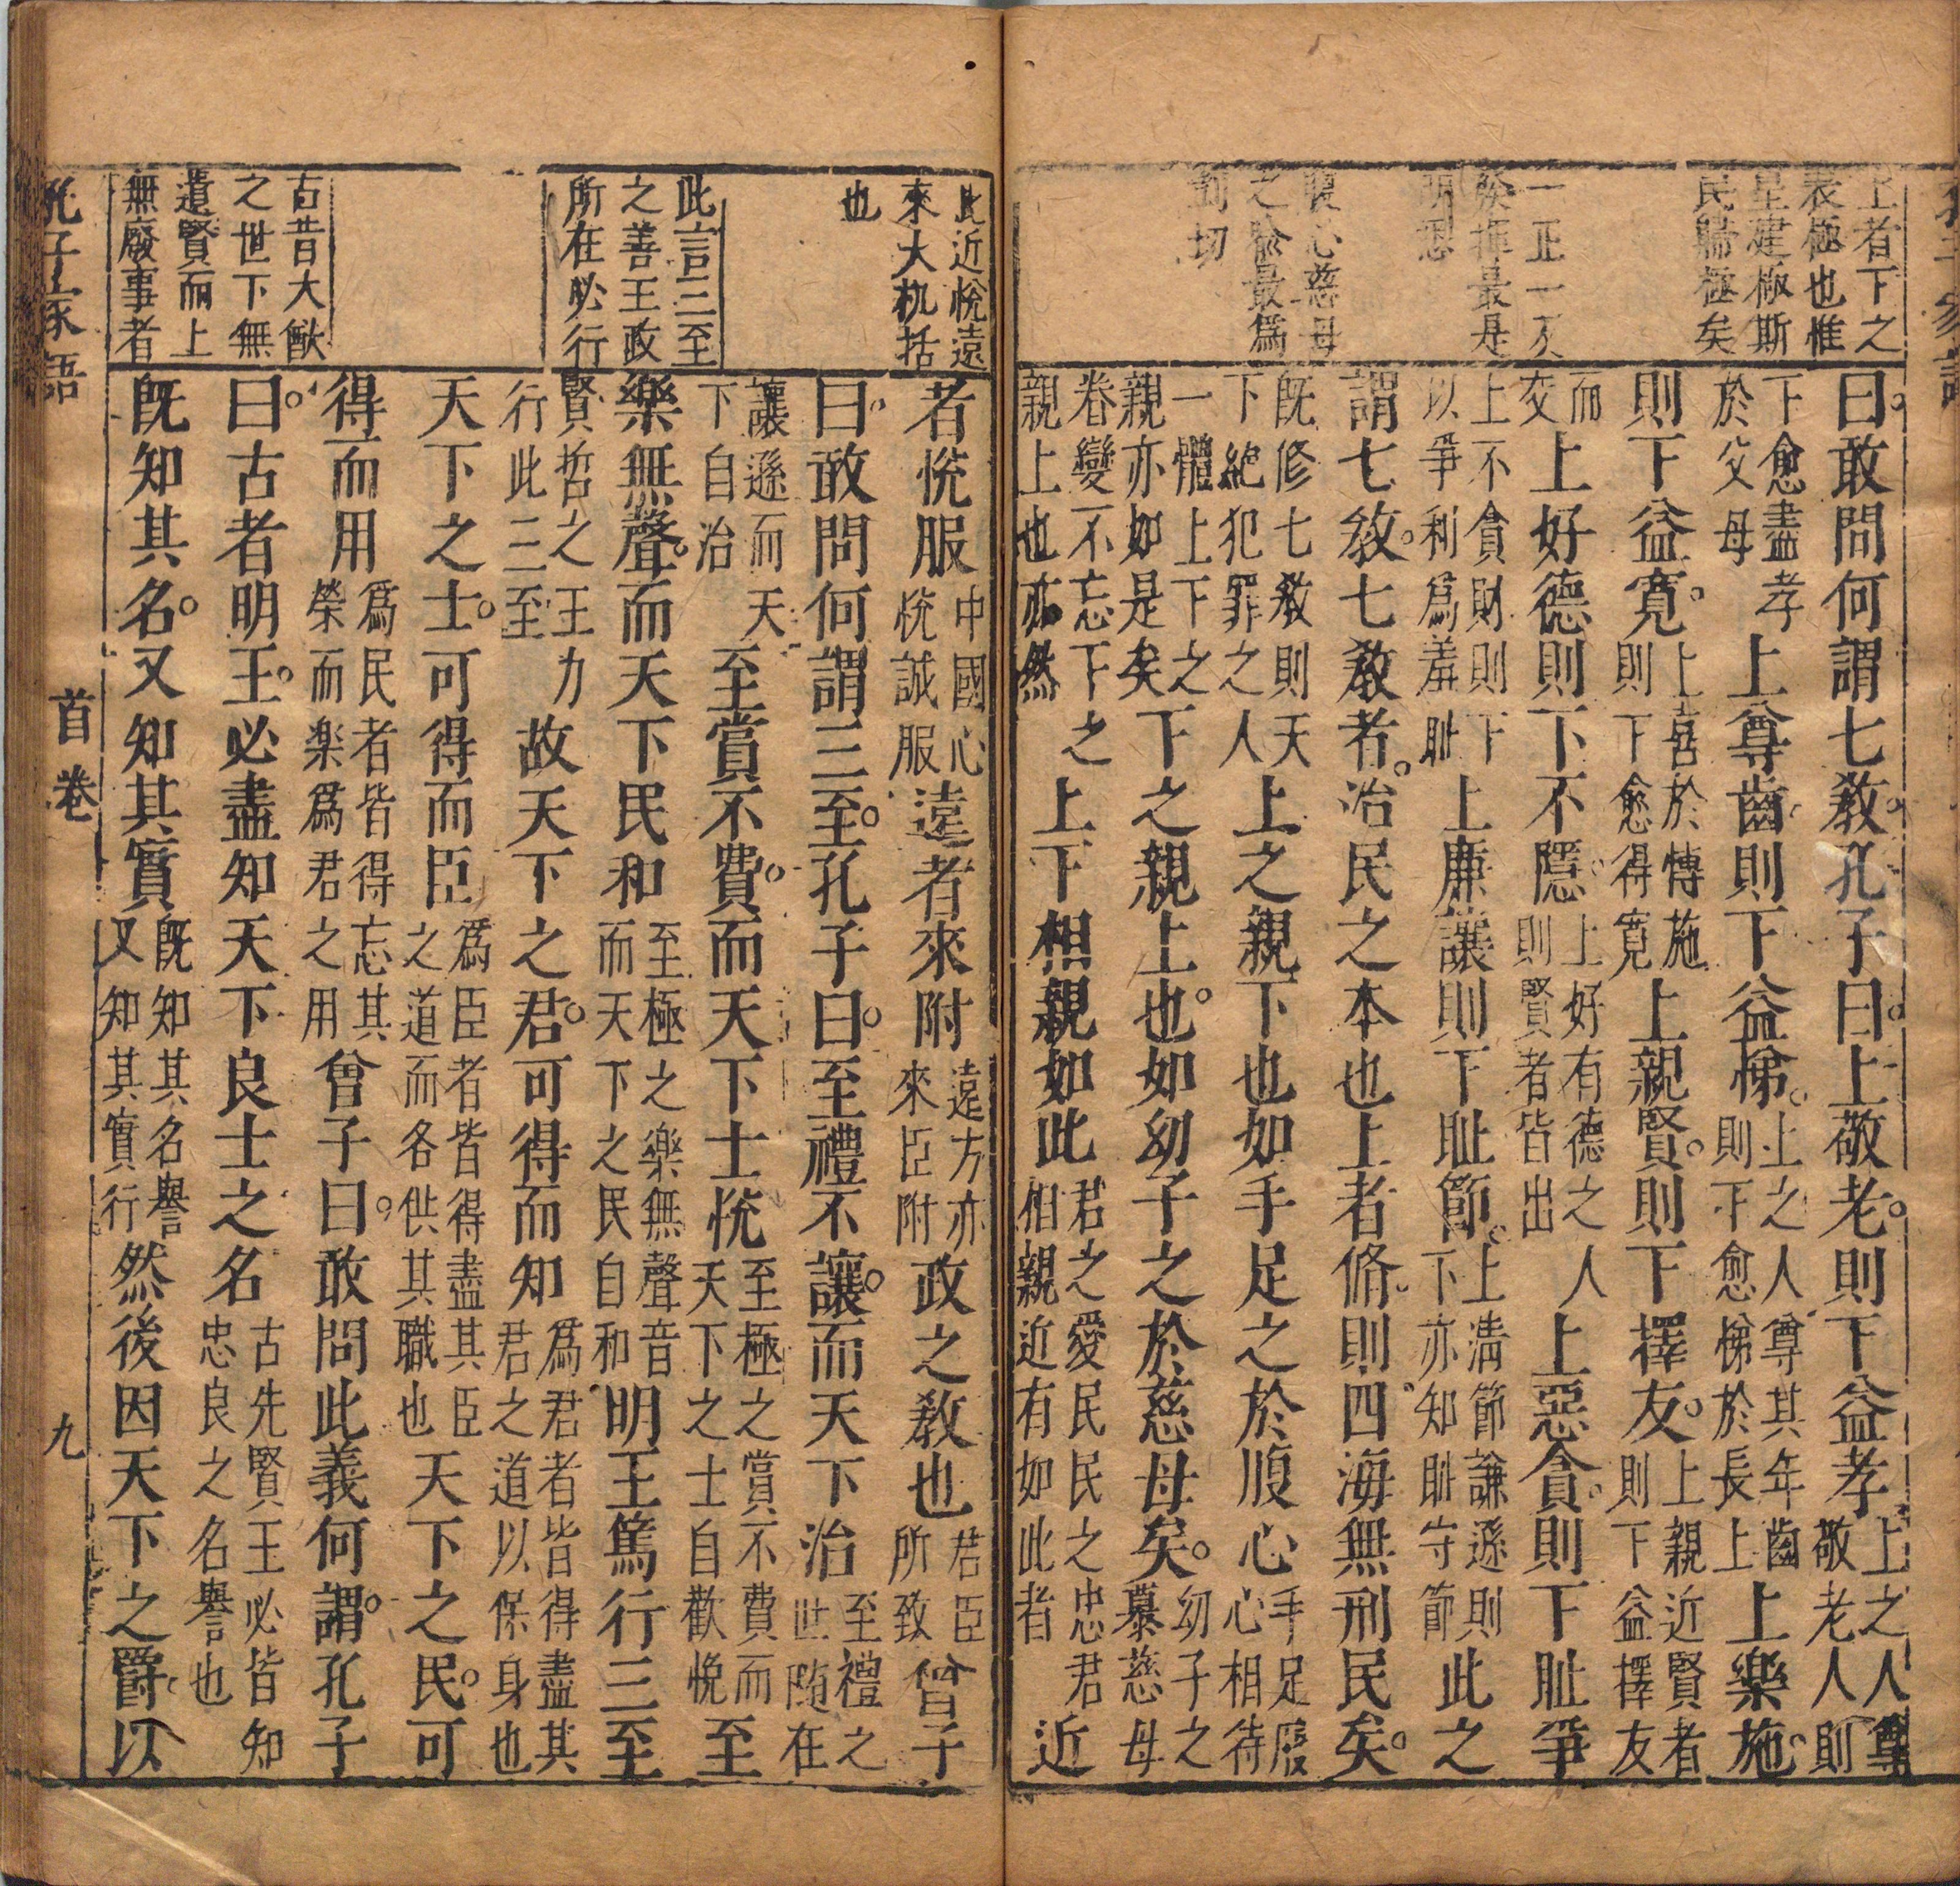 上者下之
表極也惟
皇建極斯
民歸極矣
一正一反
發揮最是
明𢡟
腹心慈母
之喻最爲
剴切
曰敢問何謂七教孔子曰上敬老則下益孝上之人尊敬老人則
下愈盡孝於父母上尊齒則下益悌上之人尊其年齒則下愈悌於長上上樂施
則下益寬上喜於博施則下愈得寬上親賢則下擇友上親近賢者則下益擇友
而交上好德則下不隱上好有德之人則賢者皆出上惡貪則下耻爭
上不貪財則下以爭利爲羞耻上廉讓則下耻節上淸節謙遜則下亦知耻守節此之
謂七教七教者治民之本也上者脩則四海無刑民矣
既修七教則天下絶犯罪之人上之親下也如手足之於腹心手足腹心相待
一體上下之親亦如是矣下之親上也如幼子之於慈母矣幼子之慕慈母
眷變不忘下之親上也亦然上下相親如此君之愛民民之忠君相親近有如此者近
此近悅遠
來大机括
也
此言三至
之善王政
所在必行
古昔大猷
之世下無
遺賢而上
無廢事者
者悅服中國心悅誠服遠者來附遠方亦來臣附政之教也君臣所致曾子
曰敢問何謂三至孔子曰至禮不讓而天下治至禮之世随在
讓遜而天下自治至賞不費而天下士恱至極之賞不費而天下之士自歡悅至
樂無聲而天下民和至極之樂無聲音而天下之民自和明王篤行三至
賢哲之王力行此三至故天下之君可得而知爲君者皆得盡其君之道以保身也
天下之士可得而臣爲臣者皆得盡其臣之道而各供其職也天下之民可
得而用爲民者皆得忘其榮而楽爲君之用曾子曰敢問此義何謂孔子
曰古者明王必盡知天下良士之名古先賢王必皆知忠良之名譽也
既知其名又知其實既知其名譽又知其實行然後因天下之爵以
孔子家語
首卷
九